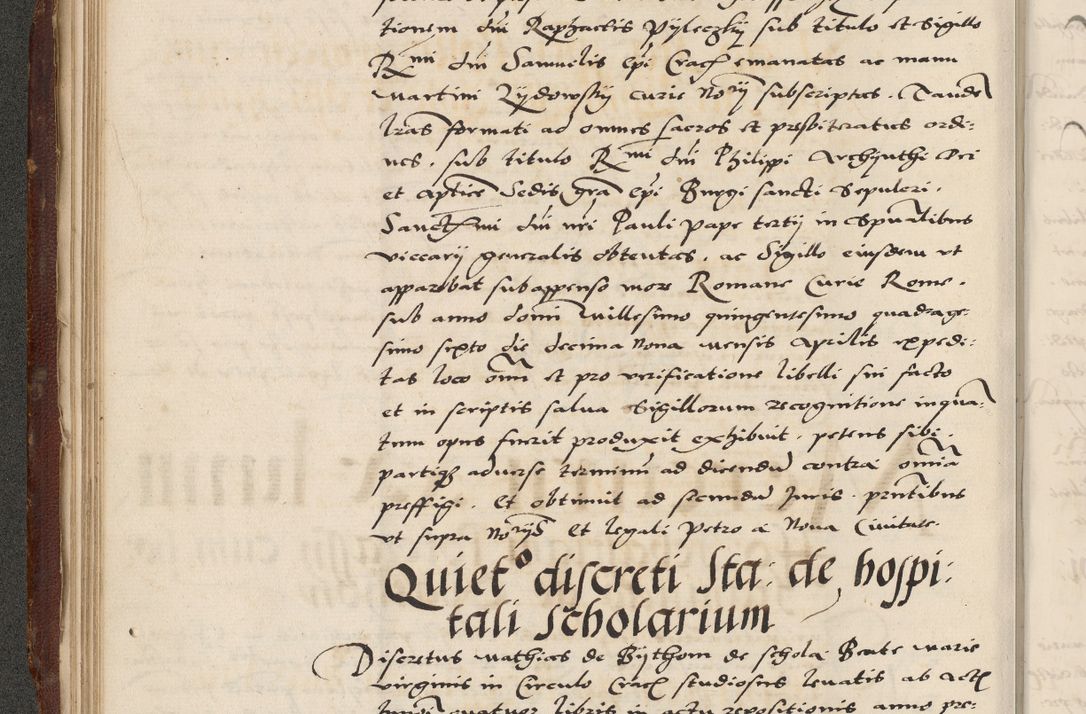 tionem dni Raphaelis Pyleczky sub titulo et Sigillo
Rmi dni Samuelis Epi Crac emanatas ac manu
Martini Zydowsky curie Norÿ subscriptas. Tandẽ
lras formati ad omnes sacros et presbiteratus ordi:
nes, sub titulo Rmi dni Philippi Archynthi Dei
et aptice Sedis gra Epi Burgi sancti Sepulcri.
Sanctmi dni nri Pauli pape tertij in Spualibus
viccarij generalis obtentas, ac Sigillo eiusdem ut
apparebat subappenso more Romane Curie Rome.
sub anno domi Millesimo quingentesimo quadrage:
simo sexto die decima nona mensis Aprilis expedi:
tas loco oim et pro verificatione libelli sui facto
et in scriptis salua Sigillorum recognitione inqua:
tum opus fuerit produxit exhibuit, petens sibi,
partiqz aduerse terminũ ad dicendũ contra oĩa
preffigi. Et obtinuit ad secundã Juris. pntibus
ut supra Norijs Et legali Petro a Noua Ciuitate.
Quiet° discreti Sta: de hospi:
tali Scholarium
Discretus Mathias de Bythom de schola Beate Marie
virginis in Circulo Crac studiosus leuatis ab Act
quatuor libris in actu repositionis anno pre: